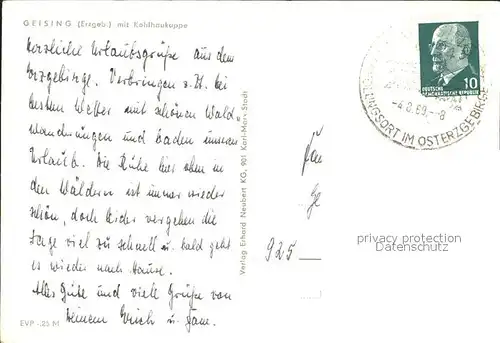 GEISING (Erzgeb.) mit Kohlhaukuppe
Herzliche Urlaubsgrüße aus dem
Erzgebirge. Verbringen z. Zt. bei
bestem Wetter mit schönen Wald-
wanderungen und baden unseren
Urlaub. Die Ruhe hier oben in
den Wäldern ist immer wieder
schön, doch leider vergehen die
Tage viel zu schnell u. bald geht
es wieder nach Hause.
Alles Gute und viele Grüße von
Deinem Erich u. Fam.
EVP -.25 M
Verlag Erhard Neubert KG, 901 Karl-Marx-Stadt
DEUTSCHE
DEMOKRATISCHE REPUBLIK
10
-4.8.69.-8
ORT IM OSTERZGEBIRGE
925
privacy protection
www.